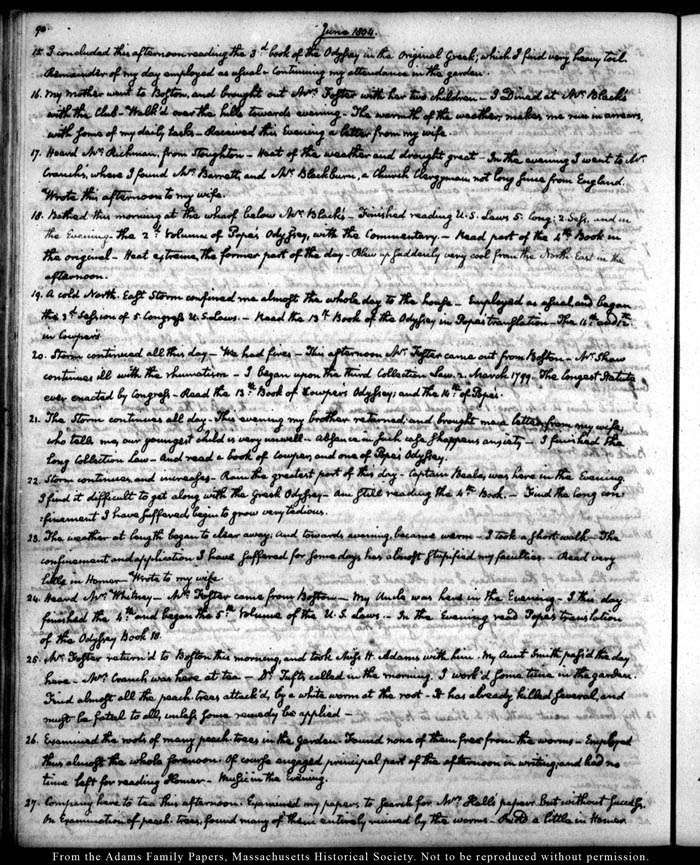 90
June 1804.
15. I concluded this afternoon reading the 3d. book of the Odyssey in the Original Greek; which I find very heavy toil.
Remainder of my day employed as usual - Continuing my attendance in the garden.
16. My mother went to Boston, and brought out Mrs. Foster with her two children - I Dined at Mr. Black's
with the Club - Walk'd over the hills towards evening - The warmth of the weather, makes me run in arrears,
with some of my daily tasks - Received this Evening a letter from my wife.
17. Heard Mr. Richman, from Stoughton - Heat of the weather and drought great - In the evening I went to Mr.
Cranch's, where I found Mr. Barrett, and Mr. Blackburn, a Church Clergyman, not long since from England.
Wrote this afternoon to my wife.
18. Bathed this morning at the wharf below Mr. Black's - Finished reading U.S. Laws 5. Cong: 2 Sess. and in
the Evening the 2d. Volume of Pope's Odyssey, with the Commentary - Read part of the 4th. Book in
the original - Heat extreme, the former part of the day - Blew up suddenly very cool from the North East in the
afternoon.
19. A cold North-East Storm confined me almost the whole day to the house - Employed as usual and began
the 3d. Session of 5. Congress U.S. Laws. - Read the 13th. Book of the Odyssey in Pope's translation - The 11th. and 12th.
in Cowper's
20. Storm continued all this day - We had fires - This afternoon Mr. Foster came out from Boston - Mr. Shaw
continues ill with the rheumatism - I began upon the third Collection Law. 2. March 1799 - The longest Statute
ever enacted by Congress - Read the 13th. Book of Cowpers Odyssey; and the 14th. of Pope's.
21. The Storm continues all day - This evening my brother returned; and brought me a letter from my wife,
who tells me, our youngest child is very unwell - Absence in such case sharpens anxiety - I finished the
Long Collection Law - And read a book of Cowper, and one of Pope's Odyssey.
22. Storm continues, and increases - Rain the greatest part of this day - Captain Beale, was here in the Evening.
I find it difficult to get along with the Greek Odyssey - Am still reading the 4th. Book. - Find the long con-
:finement I have suffered, begin to grow very tedious.
23. The weather at length began to clear away; and towards evening, became warm - I took a short walk - The
confinement and application I have suffered for some days, has almost stupified my faculties. - Read very
little in Homer - Wrote to my wife
24. Heard Mr. Whitney - Mr. Foster came from Boston - My Uncle was here in the Evening - I this day
finished the 4th. and began the 5th. Volume of the U.S. Laws. - In the Evening read Pope's translation
of the Odyssey Book 18.
25. Mr. Foster return'd to Boston this morning, and took Miss H. Adams with him. My Aunt Smith pass'd the day
here - Mrs. Cranch was here at tea - Dr. Tufts, called in the morning. I work'd some time in the garden.
Find almost all the peach-trees attack'd, by a white worm at the root - It has already killed several, and
must be fatal to all, unless some remedy be applied -
26. Examined the roots of many peach-trees in the Garden. Found none of them free from the worms - Employed
thus almost the whole forenoon. Of course engaged principal part of the afternoon in writing; and had no
time left for reading Homer - Music in the Evening.
27. Company here to tea this afternoon. Examined my papers, to search for Mr. Hall's papers. But without success.
On Examination of peach-trees, found many of them entirely ruined by the worms - Read a little in Homer.
From the Adams Family Papers, Massachusetts Historical Society. Not to be reproduced without permission.